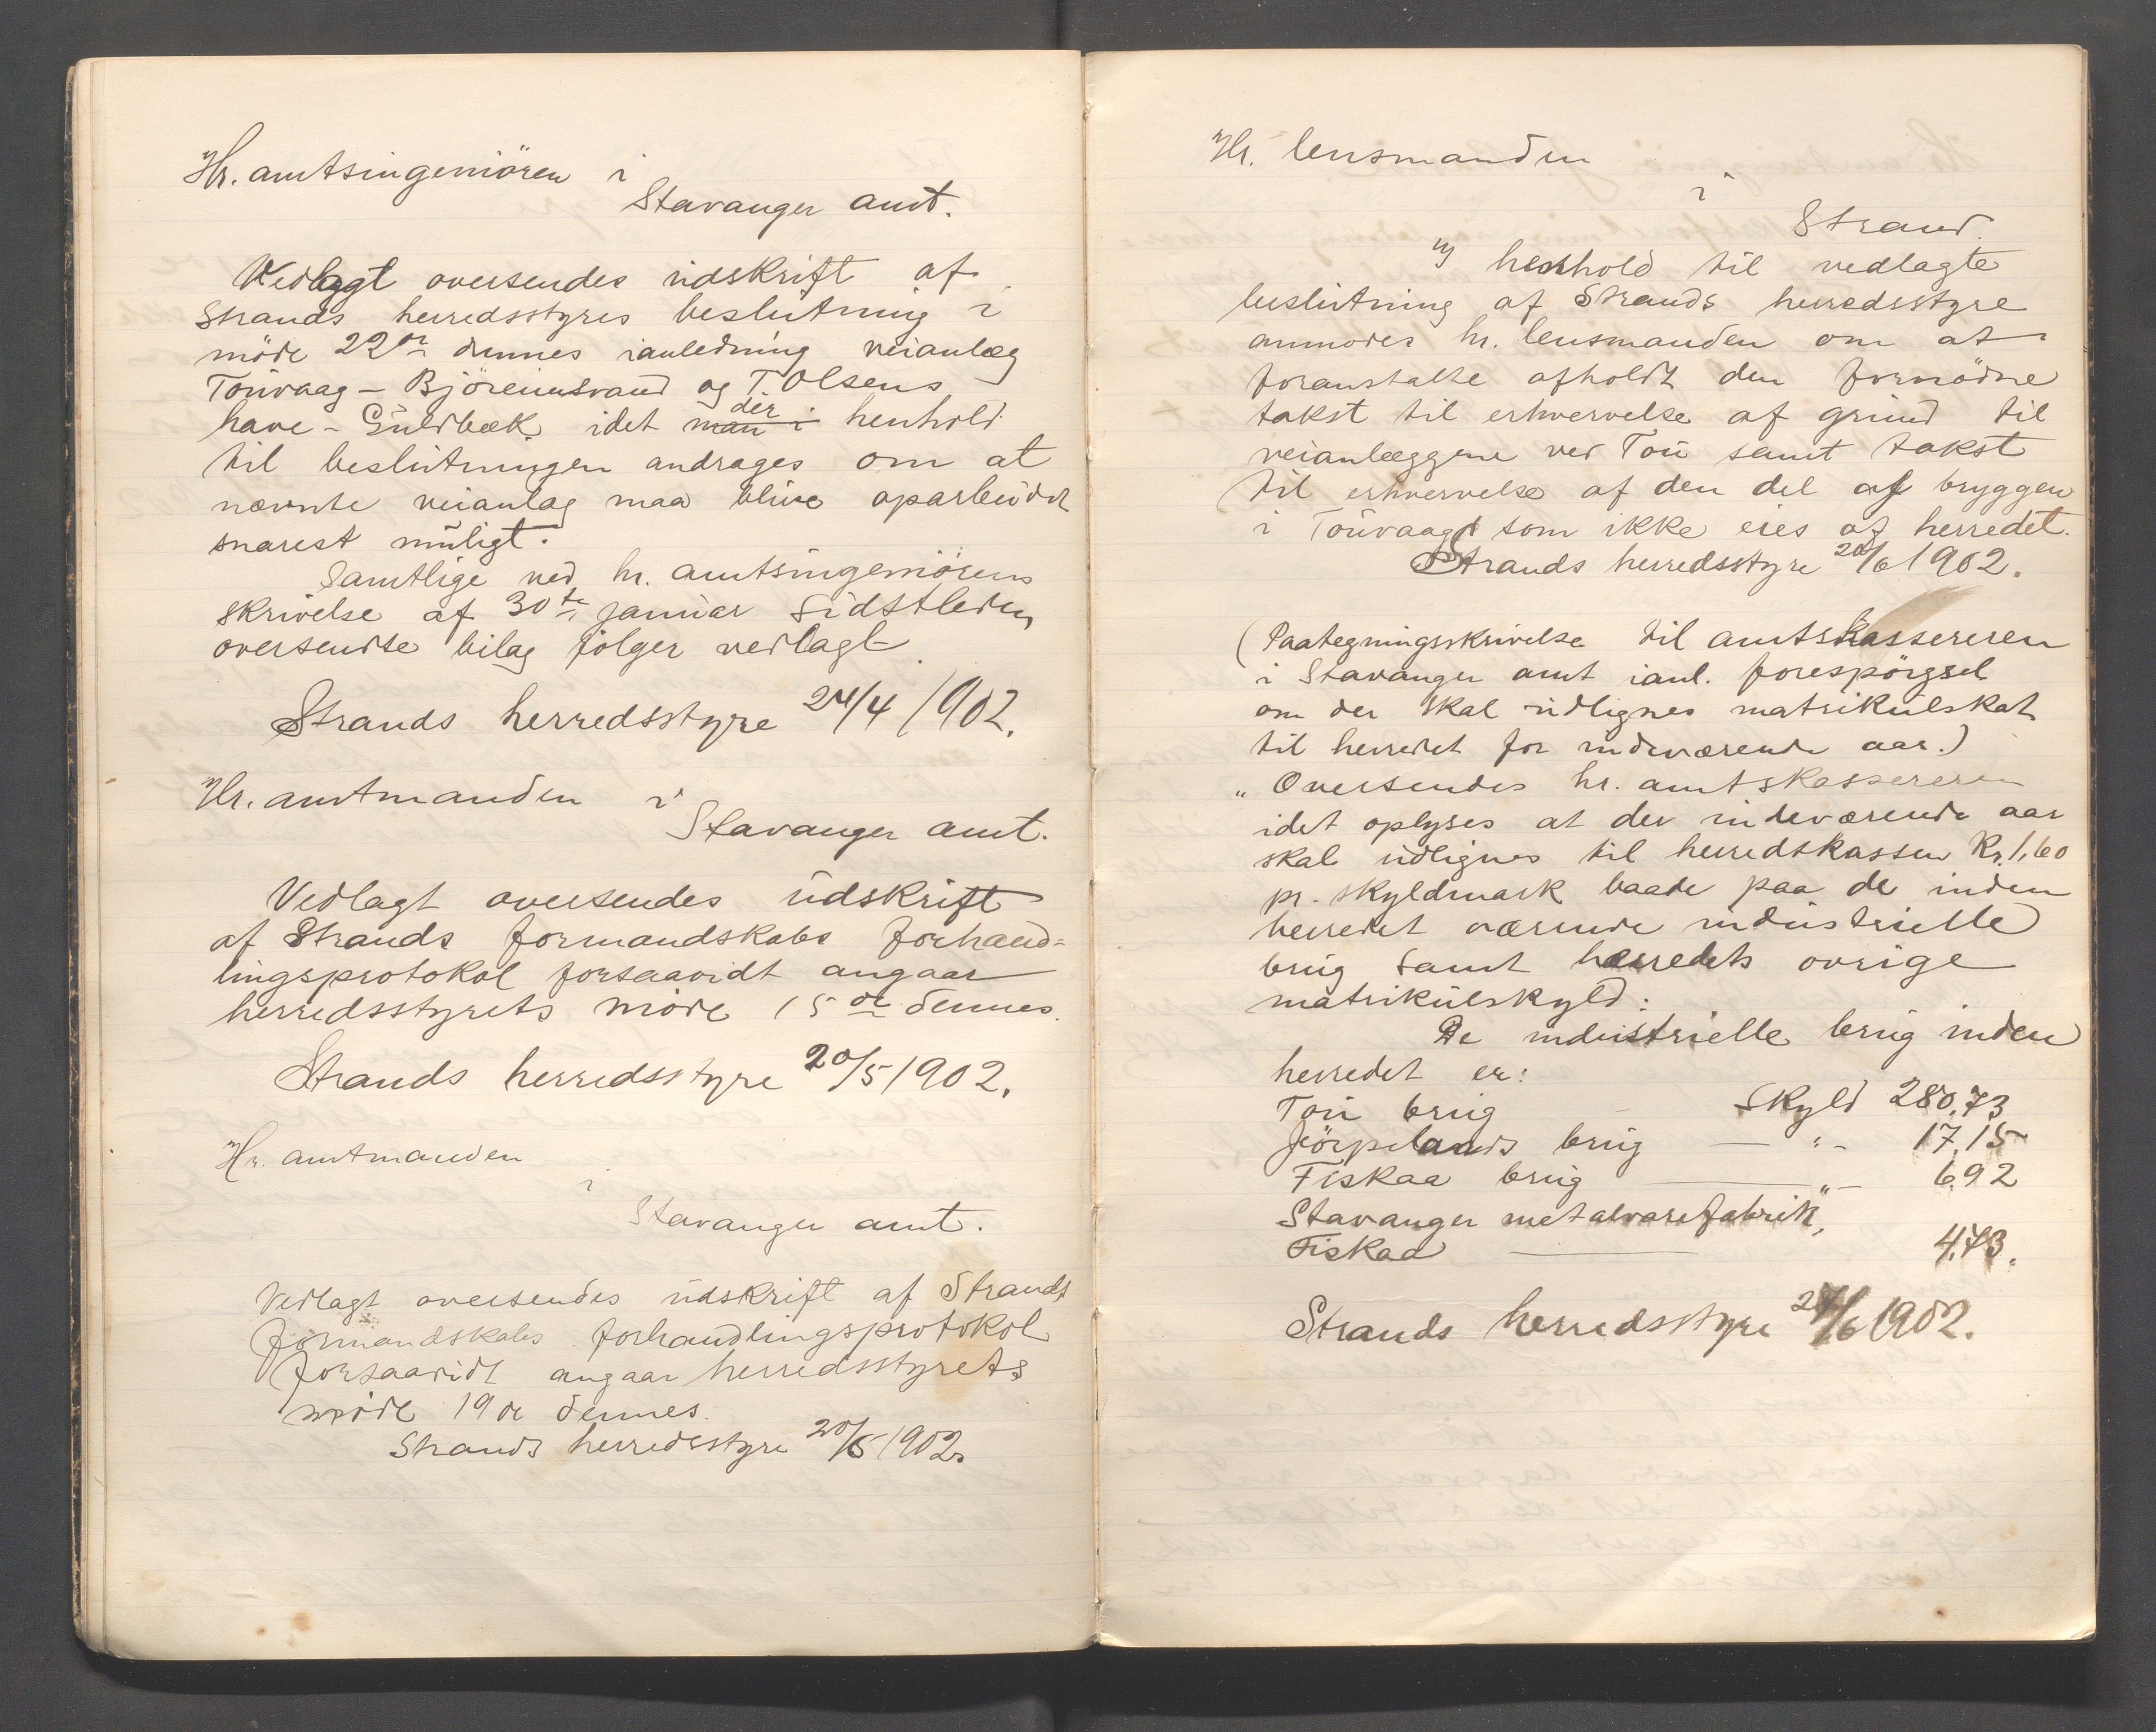 Hr. amtsingeniören i
Stavanger amt.
Vedlagt oversendes udskrift af
Strands herredsstyres beslutning i
möde 22de dennes ianledning veianlæg
Touvaag - Björeimsvand og T. Olsens
have - Guldbæk, idet man i der henhold
til beslutningen andrages om at
nævnte veianlæg maa blive oparbeidet
snarest muligt.
Samtlige ved hr. amtsingeniörens
skrivelse af 30te januar sidstleden
oversendte bilag fölger vedlagt.
Strands herredsstyre 24/4 1902.
Hr. amtmanden i
Stavanger amt.
Vedlagt oversendes udskrift
af Strands formandskabs forhand=
lingsprotokol forsaavidt angaar
herredsstyrets möde 15de dennes.
Strands herredsstyre 20/5 1902.
Hr. amtmanden
i
Stavanger amt.
Vedlagt oversendes udskrift af Strands
formandskabs forhandlingsprotokol
forsaavidt angaar herredsstyrets
möde 19de dennes.
Strands herredsstyre 20/6 1902.
Hr. lensmanden
i
Strand.
I henhold til vedlagte
beslutning af Strands herredsstyre
anmodes hr. lensmanden om at
foranstalte afholdt den fornödne
takst til erhvervelse af grund til
veianlæggene ved Tou samt takst
til erhvervelse af den del af bryggen
i Touvaag som ikke eies af herredet.
Strands herredsstyre 20/6 1902.
(Paategningsskrivelse til amtskassereren
i Stavanger amt ianl. forespörgsel
om der skal udlignes matrikulskat
til herredet for indeværende aar.)
„ Oversendes hr. amtskassereren
idet oplyses at der indeværende aar
skal udlignes til herredskassen Kr. 1,60
pr. skyldmark baade paa de inden
herredet værende industrielle
brug samt herredets ovrige
matrikulskyld:
De industrielle brug inden
herredet er:
Tou brug - Skyld 280,73
Jörpelands brug — " - 17,15
Fiskaa brug — " - 6,92
Stavanger metalvarefabrik,
Fiskaa — 4,73.
Strands herredsstyre 27/6 1902.